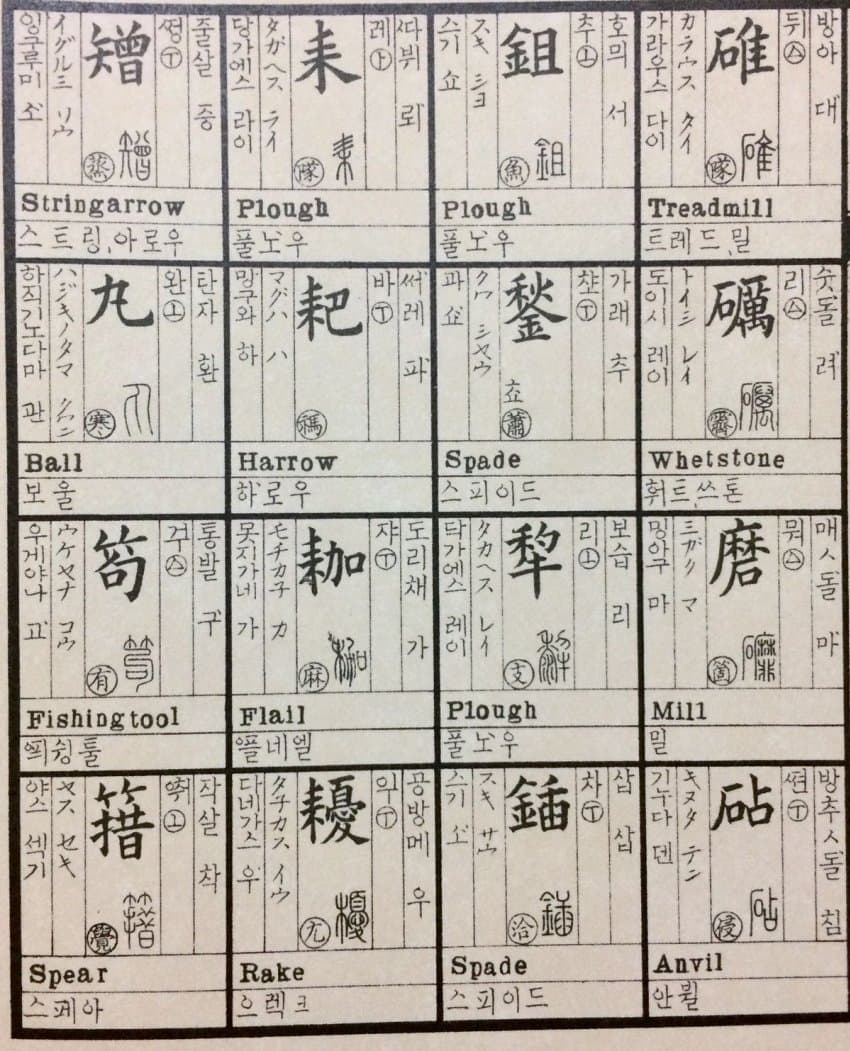 방아 대
뒤 ㊛
碓
碓
隊
カラウス タイ
가라우스 다이
Treadmill
트레드、밀
숫돌 려
리
礪
礪
霽
トイシ レイ
도이시 레이
Whetstone
휘트、쓰톤
매ㅅ돌 마
뭐
磨
箇
ミガク マ
밍아구 마
Mill
밀
방추ㅅ돌 침
쪈 ㊦
砧
砧
侵
キヌタ テン
기누다 덴
Anvil
안뷜
호믜 서
추 ㊤
鉏
鉏
魚
スキ シヨ
스기 쇼
Plough
풀노우
가래 추
챠 ㊦
鍫
蕭
クワ シヤウ
과 쇼
Spade
스피이드
보습 리
리 ㊤
犂
支
タカヘス レイ
닥가에스 레이
Plough
풀노우
삽 삽
차 ㊦
鍤
鍤
洽
スキ サウ
스기 소
Spade
스피이드
따뷔 뢰
레 ㊤
耒
耒
隊
タガヘス ライ
당가에스 라이
Plough
풀노우
써레 파
바 ㊦
耙
禡
マグハ ハ
망구와 하
Harrow
하로우
도리채 가
쟈 ㊦
耞
麻
モチカネ カ
못지가네 가
Flail
플네엘
공방메 우
익 ㊦
耰
尤
タチカス イウ
다네가스 우
Rake
으렉크
줄살 증
쩡 ㊦
矰
矰
蒸
イグルミ ソウ
잉구루미 소
Stringarrow
스트링、아로우
탄자 환
완 ㊤
丸
寒
ハジキノタマ クワン
하직기노다마 관
Ball
보울
통발 구
구
笱
笱
有
ウケヤナ コウ
우게야나 고
Fishingtool
픠슁툴
작살 착
㊤
簎
簎
覺
ヤス セキ
야스 섹기
Spear
스페아